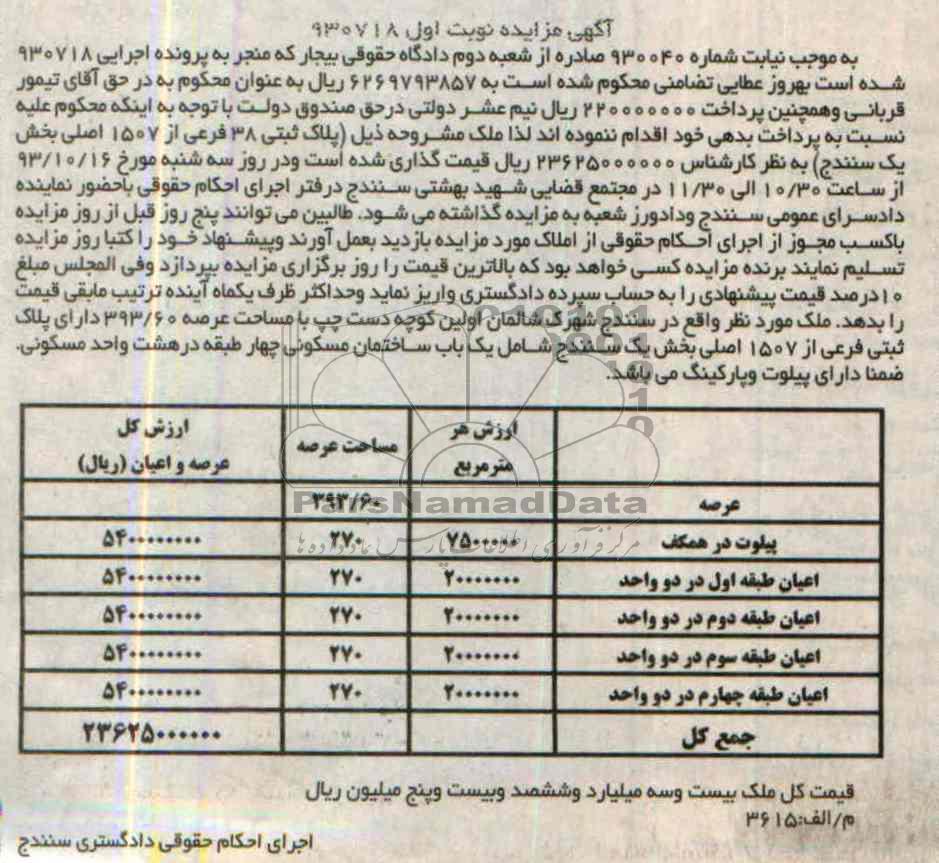 آگهی مزایده نوبت اول ۹۳۰۷۱۸
به موجب نیابت شماره ۹۳۰۰۴۰ صادره از شعبه دوم دادگاه حقوقی بیجار که منجر به پرونده اجرایی ۹۳۰۷۱۸
شده است بهروز عطایی تضامنی محکوم شده است به ۶۲۶۹۷۹۳۸۵۷ ریال به عنوان محکوم به در حق آقای تیمور
قربانی وهمچنین پرداخت ۲۲۰۰۰۰۰۰۰ ریال نیم عشر دولتی درحق صندوق دولت با توجه به اینکه محکوم علیه
نسبت به پرداخت بدهی خود اقدام ننموده اند لذا ملک مشروحه ذیل (پلاک ثبتی ۳۸ فرعی از ۱۵۰۷ اصلی بخش
یک سنندج) به نظر کارشناس ۲۳۶۲۵۰۰۰۰۰۰ ریال قیمت گذاری شده است ودر روز سه شنبه مورخ ۹۳/۱۰/۱۶
از ساعت ۱۰/۳۰ الی ۱۱/۳۰ در مجتمع قضایی شهید بهشتی سنندج درفتر اجرای احکام حقوقی باحضور نماینده
دادسرای عمومی سنندج ودادورز شعبه به مزایده گذاشته می شود. طالبین می توانند پنج روز قبل از روز مزایده
باکسب مجوز از اجرای احکام حقوقی از املاک مورد مزایده بازدید بعمل آورند وپیشنهاد خود را کتبا روز مزایده
تسلیم نمایند برنده مزایده کسی خواهد بود که بالاترین قیمت را روز برگزاری مزایده بپردازد وفی المجلس مبلغ
۱۰درصد قیمت پیشنهادی را به حساب سپرده دادگستری واریز نماید وحداکثر ظرف یکماه آینده ترتیب مابقی قیمت
را بدهد. ملک مورد نظر واقع در سنندج شهرک شالمان اولین کوچه دست چپ با مساحت عرصه ۳۹۳/۶۰ دارای پلاک
ثبتی فرعی از ۱۵۰۷ اصلی بخش یک سنندج شامل یک باب ساختمان مسکونی چهار طبقه درهشت واحد مسکونی.
ضمنا دارای پیلوت وپارکینگ می باشد.
ارزش هر مترمربع مساحت عرصه ارزش کل عرصه و اعیان (ریال)
عرصه ۳۹۳/۶۰
پیلوت در همکف ۷۵۰۰۰۰۰ ۲۷۰ ۵۴۰۰۰۰۰۰۰۰
اعیان طبقه اول در دو واحد ۲۰۰۰۰۰۰۰ ۲۷۰ ۵۴۰۰۰۰۰۰۰۰
اعیان طبقه دوم در دو واحد ۲۰۰۰۰۰۰۰ ۲۷۰ ۵۴۰۰۰۰۰۰۰۰
اعیان طبقه سوم در دو واحد ۲۰۰۰۰۰۰۰ ۲۷۰ ۵۴۰۰۰۰۰۰۰۰
اعیان طبقه چهارم در دو واحد ۲۰۰۰۰۰۰۰ ۲۷۰ ۵۴۰۰۰۰۰۰۰۰
جمع کل ۲۳۶۲۵۰۰۰۰۰۰
ParsNamadData
مرکز فرآوری اطلاعات پارس نماد داده ها
قیمت کل ملک بیست وسه میلیارد وششصد وبیست وپنج میلیون ریال
م/الف:۳۶۱۵
اجرای احکام حقوقی دادگستری سنندج